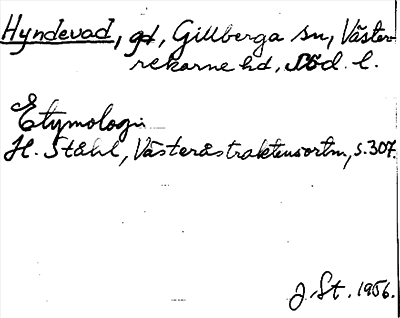 Hyndevad, gd, Gillberga sn, Väster-
rekarne hd, Söd. l.
Etymologi
H. Ståhl, Västeråstraktens ortn., s. 307.
J. St. 1956.